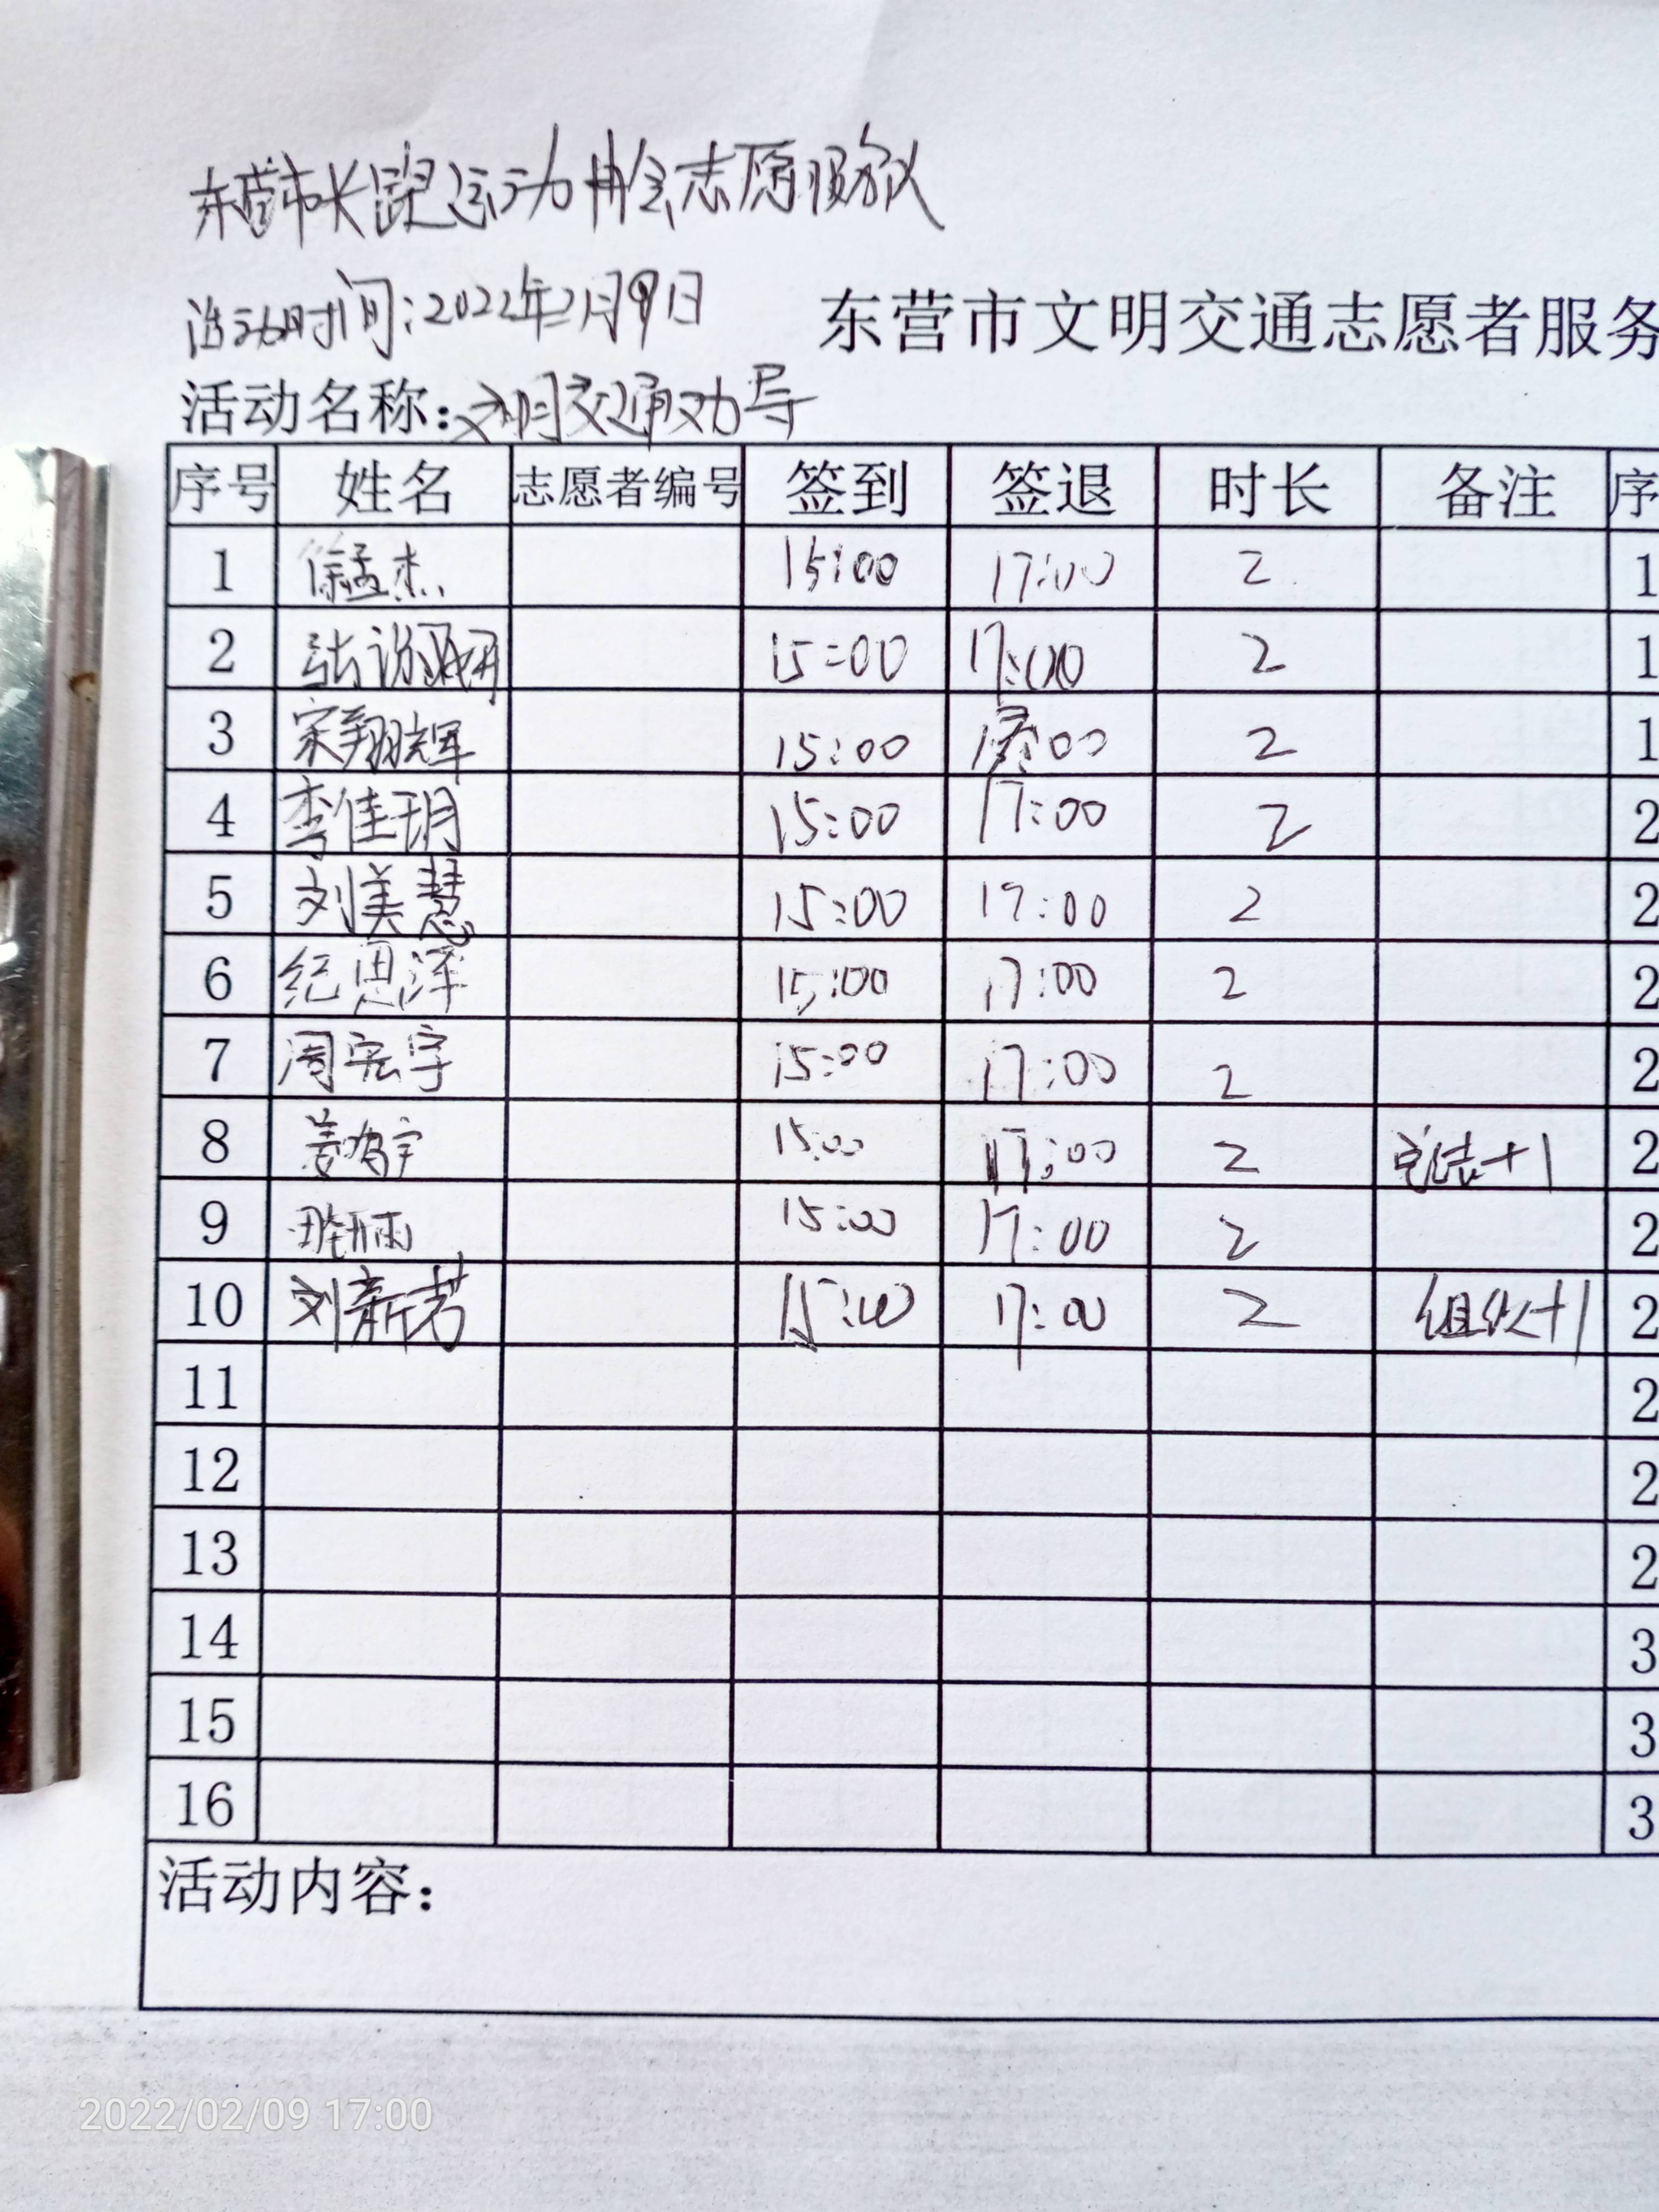 东营市长跑运动协会志愿服务队
活动时间:2022年2月9日
东营市文明交通志愿者服务
活动名称:文明交通劝导
序号 姓名 志愿者编号 签到 签退 时长 备注 序
1 徐孟杰 15:00 17:00 2 1
2 15:00 17:00 2 1
3 宋翔辉 15:00 :00 2 1
4 李佳玥 15:00 17:00 2 2
5 刘美慧 15:00 17:00 2 2
6 纪思泽 15:00 17:00 2 2
7 周宏宇 15:00 17:00 2 2
8 姜鸿宇 15:00 17:00 2 +1 2
9 15:00 17:00 2 2
10 刘新芳 15:00 17:00 2 组织+1 2
11 2
12 2
13 2
14 3
15 3
16 3
活动内容:
2022/02/09 17:00